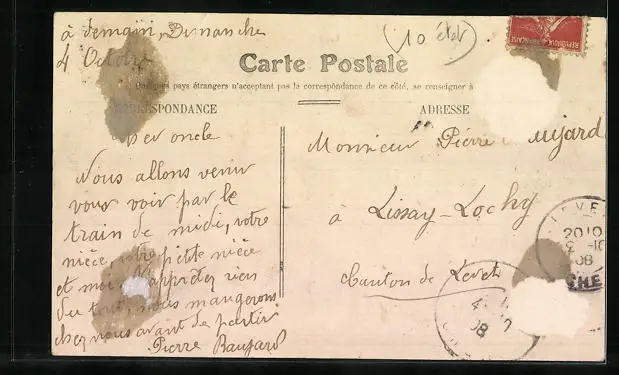 à demain, Dimanche
4 Octobre
(10 étoi)
Carte Postale
pays étrangers n'acceptant pas la correspondance de ce côté, se renseigner à
CORRESPONDANCE
ADRESSE
Cher oncle
Nous allons venir
vous voir par le
train de midi, votre
nièce, votre petite nièce
et moi. N'apprêtez rien
du tout, nous mangerons
chez nous avant de partir
Pierre Baujard
Monsieur Pierre Baujard
à Lissay-Lochy
Canton de Levet
REPUBLIQUE FRANÇAISE
LEVE
20 10
2 -10
08
CHE
4
08